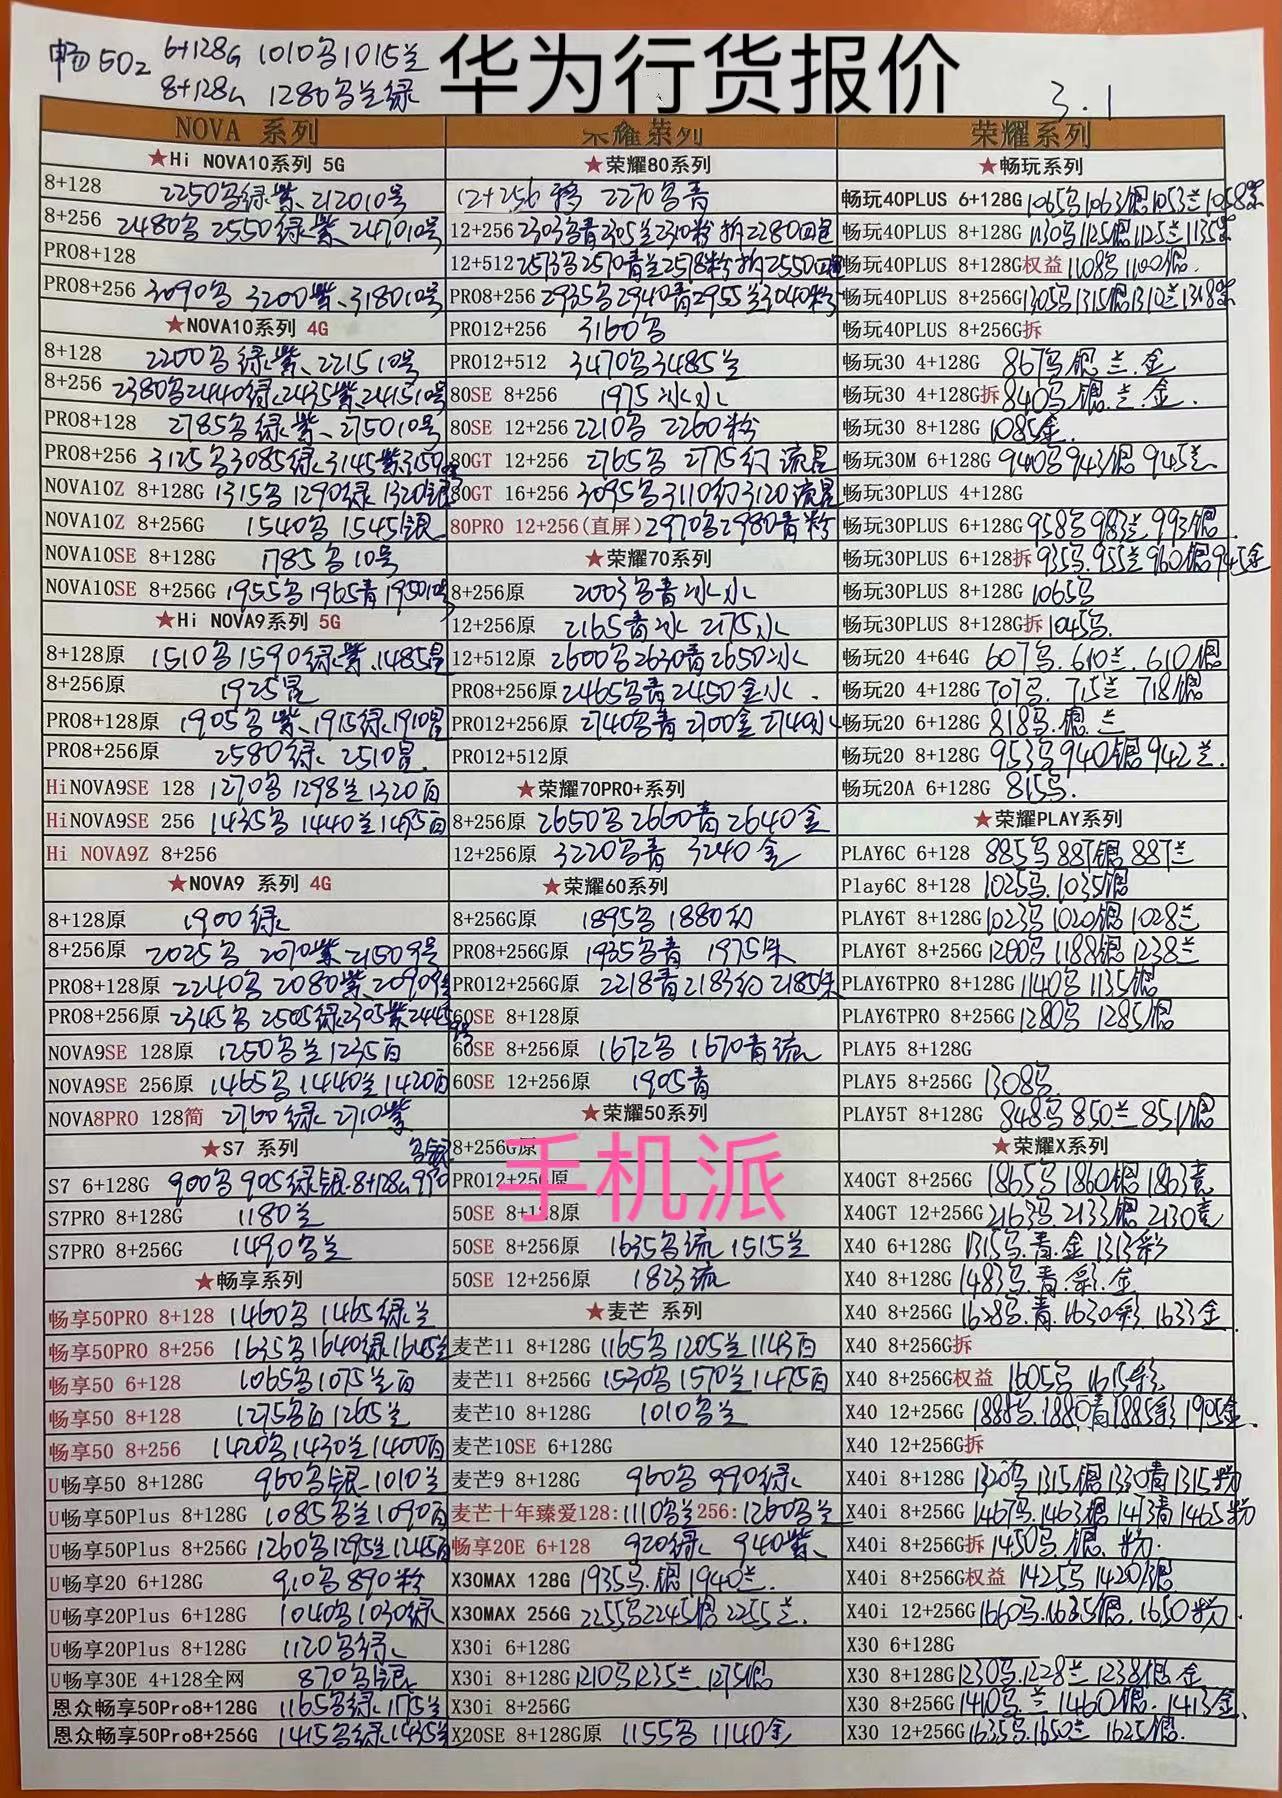 畅50z 6+128G 1010 1015兰
8+128G 1280 兰绿
华为行货报价
3.1
NOVA 系列
★Hi NOVA10系列 5G
8+128 2250 绿紫、2120 10号
8+256 2480 2550绿紫、2470 10号
PRO8+128
PRO8+256 3090 3200紫、3180 10号
★NOVA10系列 4G
8+128 2200 绿紫、2215 10号
8+256 2380 2440绿、2435紫、2415 10号
PRO8+128 2785 绿紫、2750 10号
PRO8+256 3125 3085绿、3145紫、3150
NOVA10Z 8+128G 1315 1290绿 1320银
NOVA10Z 8+256G 1540 1545银
NOVA10SE 8+128G 1785 10号
NOVA10SE 8+256G 1955 1965青 1950 10号
★Hi NOVA9系列 5G
8+128原 1510 1590绿紫、1485星
8+256原 1925星
PRO8+128原 1905 紫、1915绿、1910星
PRO8+256原 2580绿、2510星
HiNOVA9SE 128 1270 1298兰 1320白
HiNOVA9SE 256 1435 1440兰 1475白
Hi NOVA9Z 8+256
★NOVA9 系列 4G
8+128原 1900绿
8+256原 2025 2070紫、2150 9号
PRO8+128原 2240 2080紫、2090
PRO8+256原 2345 2505绿、2305紫、2445 9号
NOVA9SE 128原 1250 兰 1235白
NOVA9SE 256原 1465 1440兰 1420白
NOVA8PRO 128简 2760绿、2710紫
★S7 系列
S7 6+128G 900 905绿银、8+128G 990 银
S7PRO 8+128G 1180兰
S7PRO 8+256G 1490 兰
★畅享系列
畅享50PRO 8+128 1460 1465绿兰
畅享50PRO 8+256 1635 1640绿、1645兰
畅享50 6+128 1065 1075兰白
畅享50 8+128 1275 白 1265兰
畅享50 8+256 1420 1430兰 1400白
U畅享50 8+128G 960 银、1010兰
U畅享50Plus 8+128G 1085 兰 1090白
U畅享50Plus 8+256G 1260 1295兰 1245白
U畅享20 6+128G 910 890粉
U畅享20Plus 6+128G 1040 1030绿
U畅享20Plus 8+128G 1120 绿
U畅享30E 4+128全网 870 银
恩众畅享50Pro8+128G 1165 绿、1175兰
恩众畅享50Pro8+256G 1415 绿、1435兰
荣耀系列
★荣耀80系列
12+256 移 2270 青
12+256 2303 青 2305兰 2310粉 拆2280
12+512 2573 2570青兰 2578粉 拆2550
PRO8+256 2935 2940青 2955兰 3040粉
PRO12+256 3160
PRO12+512 3470 3485兰
80SE 8+256 1975 冰水
80SE 12+256 2210 2260粉
80GT 12+256 2765 2775幻 流星
80GT 16+256 3095 3110幻 3120流星
80PRO 12+256(直屏) 2970 2980青粉
★荣耀70系列
8+256原 2003 青冰水
12+256原 2165青冰 2175水
12+512原 2600 2630青 2650冰
PRO8+256原 2465 青 2450金水
PRO12+256原 2740 青 2700金 2740水
PRO12+512原
★荣耀70PRO+系列
8+256原 2650 2660青 2640金
12+256原 3220 青 3240金
★荣耀60系列
8+256G原 1895 1880幻
PRO8+256G原 1935 青 1975朱
PRO12+256G原 2218青 2183幻 2185朱
60SE 8+128原
60SE 8+256原 1672 1670青流
60SE 12+256原 1905青
★荣耀50系列
8+256G原
手机派
PRO12+256原
50SE 8+128原
50SE 8+256原 1635 流 1515兰
50SE 12+256原 1823流
★麦芒 系列
麦芒11 8+128G 1165 1205兰 1143白
麦芒11 8+256G 1530 1570兰 1475白
麦芒10 8+128G 1010 兰
麦芒10SE 6+128G
麦芒9 8+128G 960 990绿
麦芒十年臻爱128:1110 兰256:1260 兰
畅享20E 6+128 920绿、940紫
X30MAX 128G 1935 银 1940兰
X30MAX 256G 2255 2245银 2255兰
X30i 6+128G
X30i 8+128G 1210 1235兰 1275银
X30i 8+256G
X20SE 8+128G原 1155 1140金
荣耀系列
★畅玩系列
畅玩40PLUS 6+128G 1065 1063银 1053兰 1058
畅玩40PLUS 8+128G 1130 1125银 1125兰 1135
畅玩40PLUS 8+128G权益 1108 1100银
畅玩40PLUS 8+256G 1305 1315银 1310兰 1308
畅玩40PLUS 8+256G拆
畅玩30 4+128G 867 银 兰 金
畅玩30 4+128G拆 840 银、兰、金
畅玩30 8+128G 1085金
畅玩30M 6+128G 940 943银 945兰
畅玩30PLUS 4+128G
畅玩30PLUS 6+128G 958 983兰 993银
畅玩30PLUS 6+128拆 935 955兰 960银 945金
畅玩30PLUS 8+128G 1065
畅玩30PLUS 8+128G拆 1045
畅玩20 4+64G 607 610兰 610银
畅玩20 4+128G 707 715兰 718银
畅玩20 6+128G 818 银 兰
畅玩20 8+128G 953 940银 942兰
畅玩20A 6+128G 815
★荣耀PLAY系列
PLAY6C 6+128 885 887银 887兰
Play6C 8+128 1025 1035银
PLAY6T 8+128G 1023 1020银 1028兰
PLAY6T 8+256G 1200 1188银 1238兰
PLAY6TPRO 8+128G 1140 1135银
PLAY6TPRO 8+256G 1280 1285银
PLAY5 8+128G
PLAY5 8+256G 1308
PLAY5T 8+128G 848 850兰 851银
★荣耀X系列
X40GT 8+256G 1865 1860银 1863竞
X40GT 12+256G 2163 2133银 2130竞
X40 6+128G 1315 青 金 1313彩
X40 8+128G 1483 青 彩 金
X40 8+256G 1628 青 1630彩 1633金
X40 8+256G拆
X40 8+256G权益 1605 1615彩
X40 12+256G 1885 1880青 1885彩 1905金
X40 12+256G拆
X40i 8+128G 1320 1315银 1330青 1315粉
X40i 8+256G 1467 1463银 1473青 1465粉
X40i 8+256G拆 1450 银 粉
X40i 8+256G权益 1425 1420银
X40i 12+256G 1660 1635银 1650粉
X30 6+128G
X30 8+128G 1230 1228兰 1238银 金
X30 8+256G 1410 兰 1460银 1413金
X30 12+256G 1635 1650兰 1625银